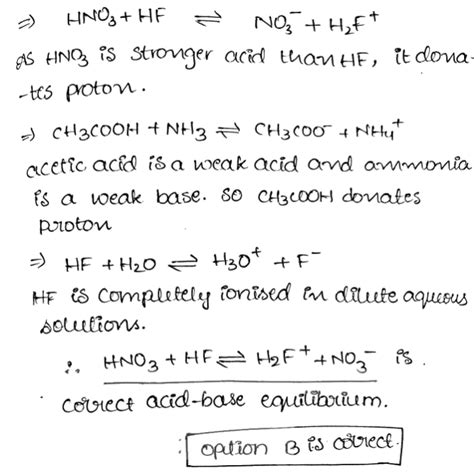 ⇒ HNO₃ + HF ⇌ NO₃⁻ + H₂F⁺
As HNO₃ is stronger acid than HF, it dona-
-tes proton.
⇒ CH₃COOH + NH₃ ⇌ CH₃COO⁻ + NH₄⁺
acetic acid is a weak acid and ammonia
is a weak base. so CH₃COOH donates
proton
⇒ HF + H₂O ⇌ H₃O⁺ + F⁻
HF is completely ionised in dilute aqueous
solutions.
∴ HNO₃ + HF ⇌ H₂F⁺ + NO₃⁻ is.
correct acid-base equilibrium.
: option B is correct.